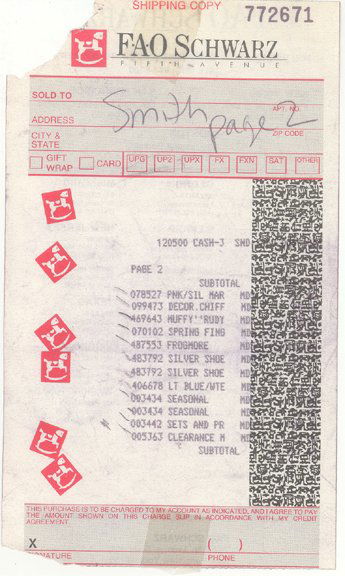 SHIPPING COPY
772671
FAO SCHWARZ
FIFTH AVENUE
SOLD TO
Smith page 2
APT. NO.
ADDRESS
ZIP CODE
CITY &
STATE
GIFT WRAP CARD UPG UP2 UPX FX FXN SAT OTHER
120500 CASH-3 SHD
PAGE 2
SUBTOTAL
078527 PNK/SIL MAR MD
099473 DECOR.CHIFF MD
469643 MUFFY"RUDY MD
070102 SPRING FING MD
487553 FROGMORE MD
483792 SILVER SHOE MD
483792 SILVER SHOE MD
406678 LT BLUE/WTE MD
003434 SEASONAL MD
003434 SEASONAL MD
003442 SETS AND PR MD
005363 CLEARANCE M MD
SUBTOTAL
THIS PURCHASE IS TO BE CHARGED TO MY ACCOUNT AS INDICATED, AND I AGREE TO PAY
THE AMOUNT SHOWN ON THIS CHARGE SLIP IN ACCORDANCE WITH MY CREDIT
AGREEMENT.
X ( )
SIGNATURE PHONE